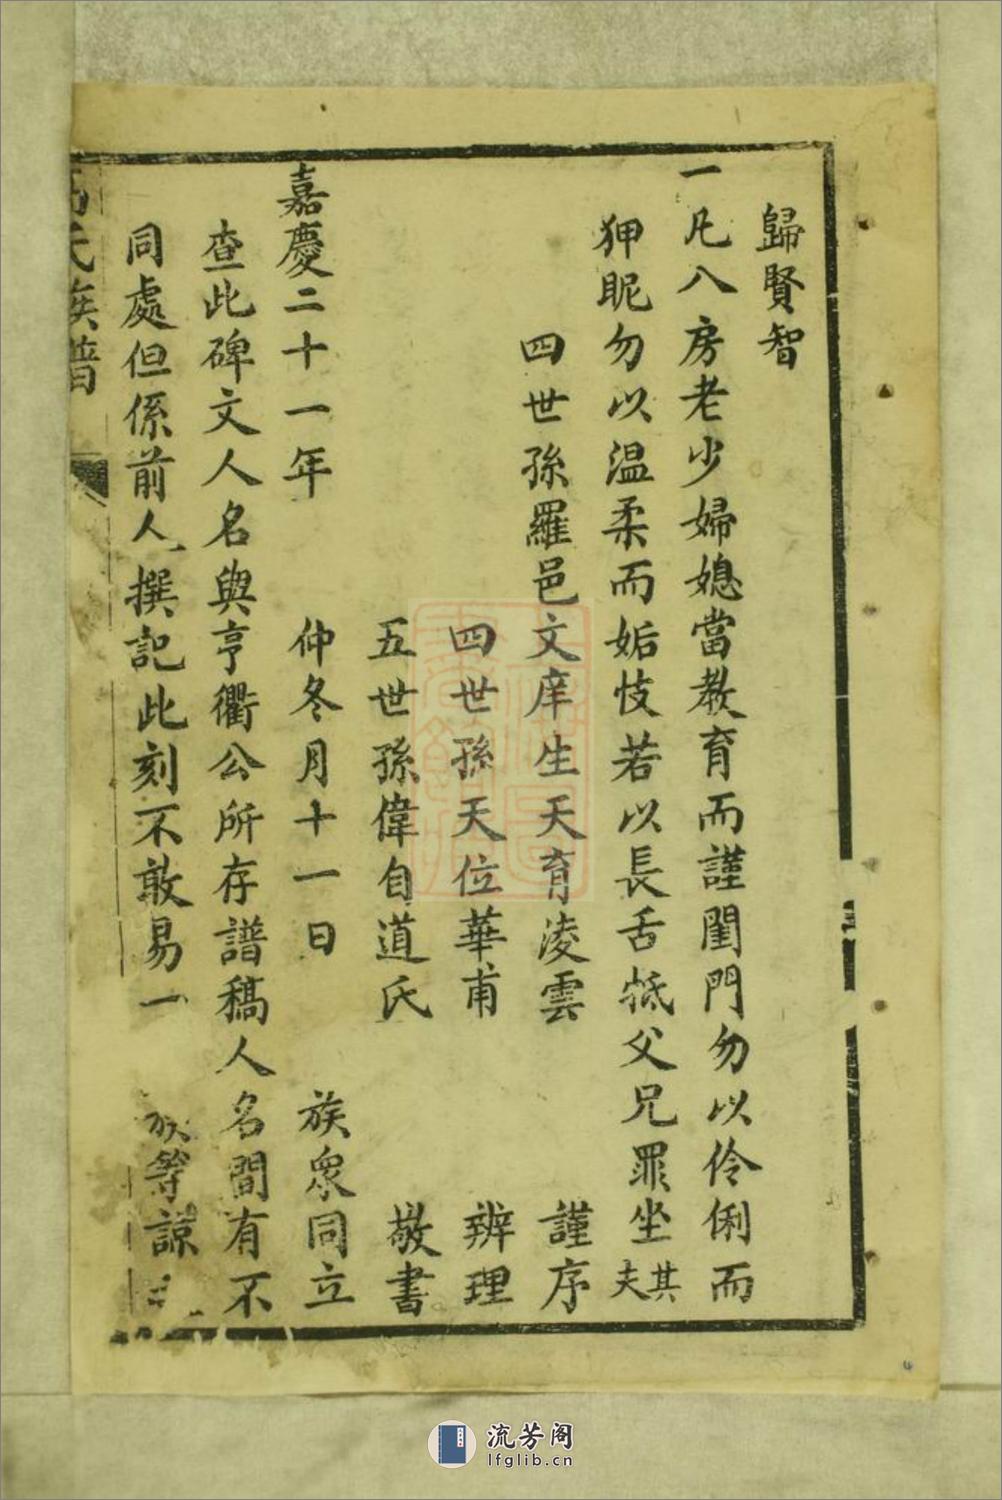 歸賢智
一凡八房老少婦媳當教育而謹閨門勿以伶俐而
狎昵勿以温柔而姤忮若以長舌牴父兄罪坐其夫
四世孫羅邑文庠生天育淩雲 謹序
四世孫天位華甫 辨理
五世孫偉自道氏 敬書
嘉慶二十一年 仲冬月十一日 族衆同立
查此碑文人名與亨衢公所存譜稿人名間有不
同處但係前人撰記此刻不敢易一 族等諒
氏族譜
流芳阁
lfglib.cn